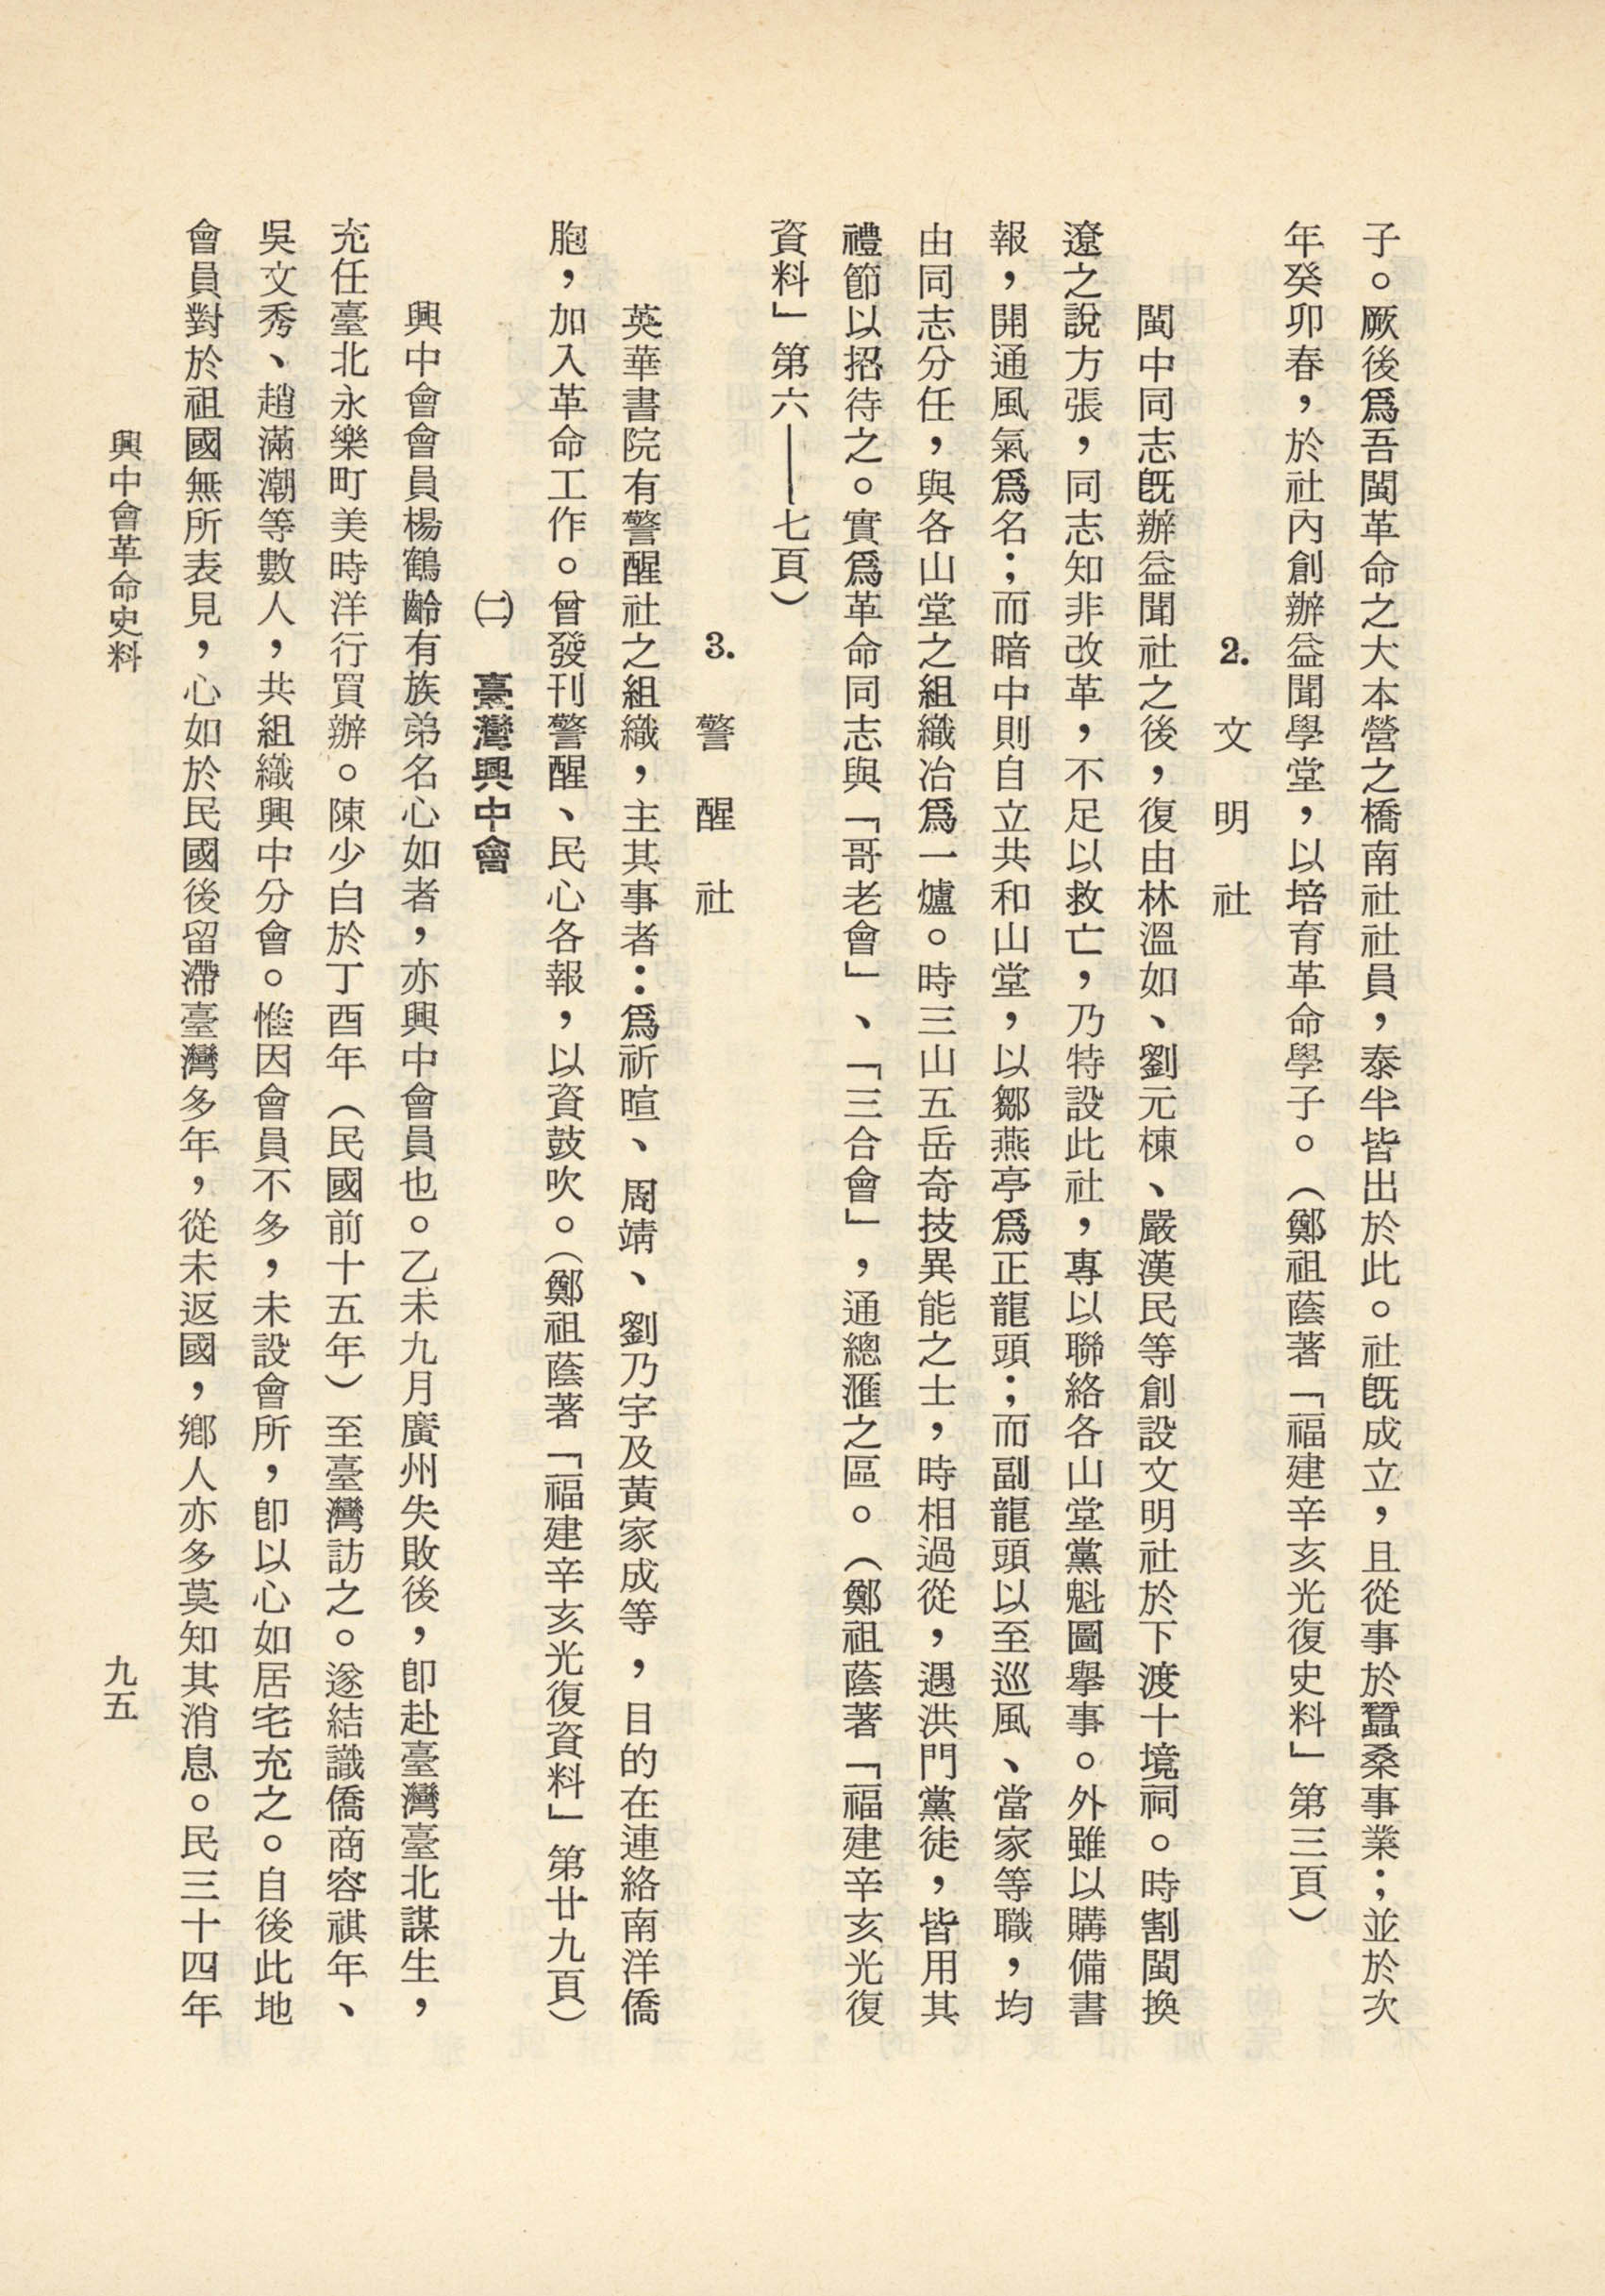 子。厥後爲吾閩革命之大本營之橋南社社員，泰半皆出於此。社旣成立，且從事於蠶桑事業；並於次
年癸卯春，於社內創辦益聞學堂，以培育革命學子。（鄭祖蔭著「福建辛亥光復史料」第三頁）
2. 文明社
閩中同志旣辦益聞社之後，復由林溫如、劉元棟、嚴漢民等創設文明社於下渡十境祠。時割閩換
遼之說方張，同志知非改革，不足以救亡，乃特設此社，專以聯絡各山堂黨魁圖舉事。外雖以購備書
報，開通風氣爲名；而暗中則自立共和山堂，以鄒燕亭爲正龍頭；而副龍頭以至巡風、當家等職，均
由同志分任，與各山堂之組織冶爲一爐。時三山五岳奇技異能之士，時相過從，遇洪門黨徒，皆用其
禮節以招待之。實爲革命同志與「哥老會」、「三合會」，通總滙之區。（鄭祖蔭著「福建辛亥光復
資料」第六——七頁）
3. 警醒社
英華書院有警醒社之組織，主其事者：爲祈暄、周靖、劉乃宇及黃家成等，目的在連絡南洋僑
胞，加入革命工作。曾發刊警醒、民心各報，以資鼓吹。（鄭祖蔭著「福建辛亥光復資料」第廿九頁）
㈡ 臺灣興中會
興中會會員楊鶴齡有族弟名心如者，亦興中會員也。乙未九月廣州失敗後，卽赴臺灣臺北謀生，
充任臺北永樂町美時洋行買辦。陳少白於丁酉年（民國前十五年）至臺灣訪之。遂結識僑商容祺年、
吳文秀、趙滿潮等數人，共組織興中分會。惟因會員不多，未設會所，卽以心如居宅充之。自後此地
會員對於祖國無所表見，心如於民國後留滯臺灣多年，從未返國，鄉人亦多莫知其消息。民三十四年
興中會革命史料
九五